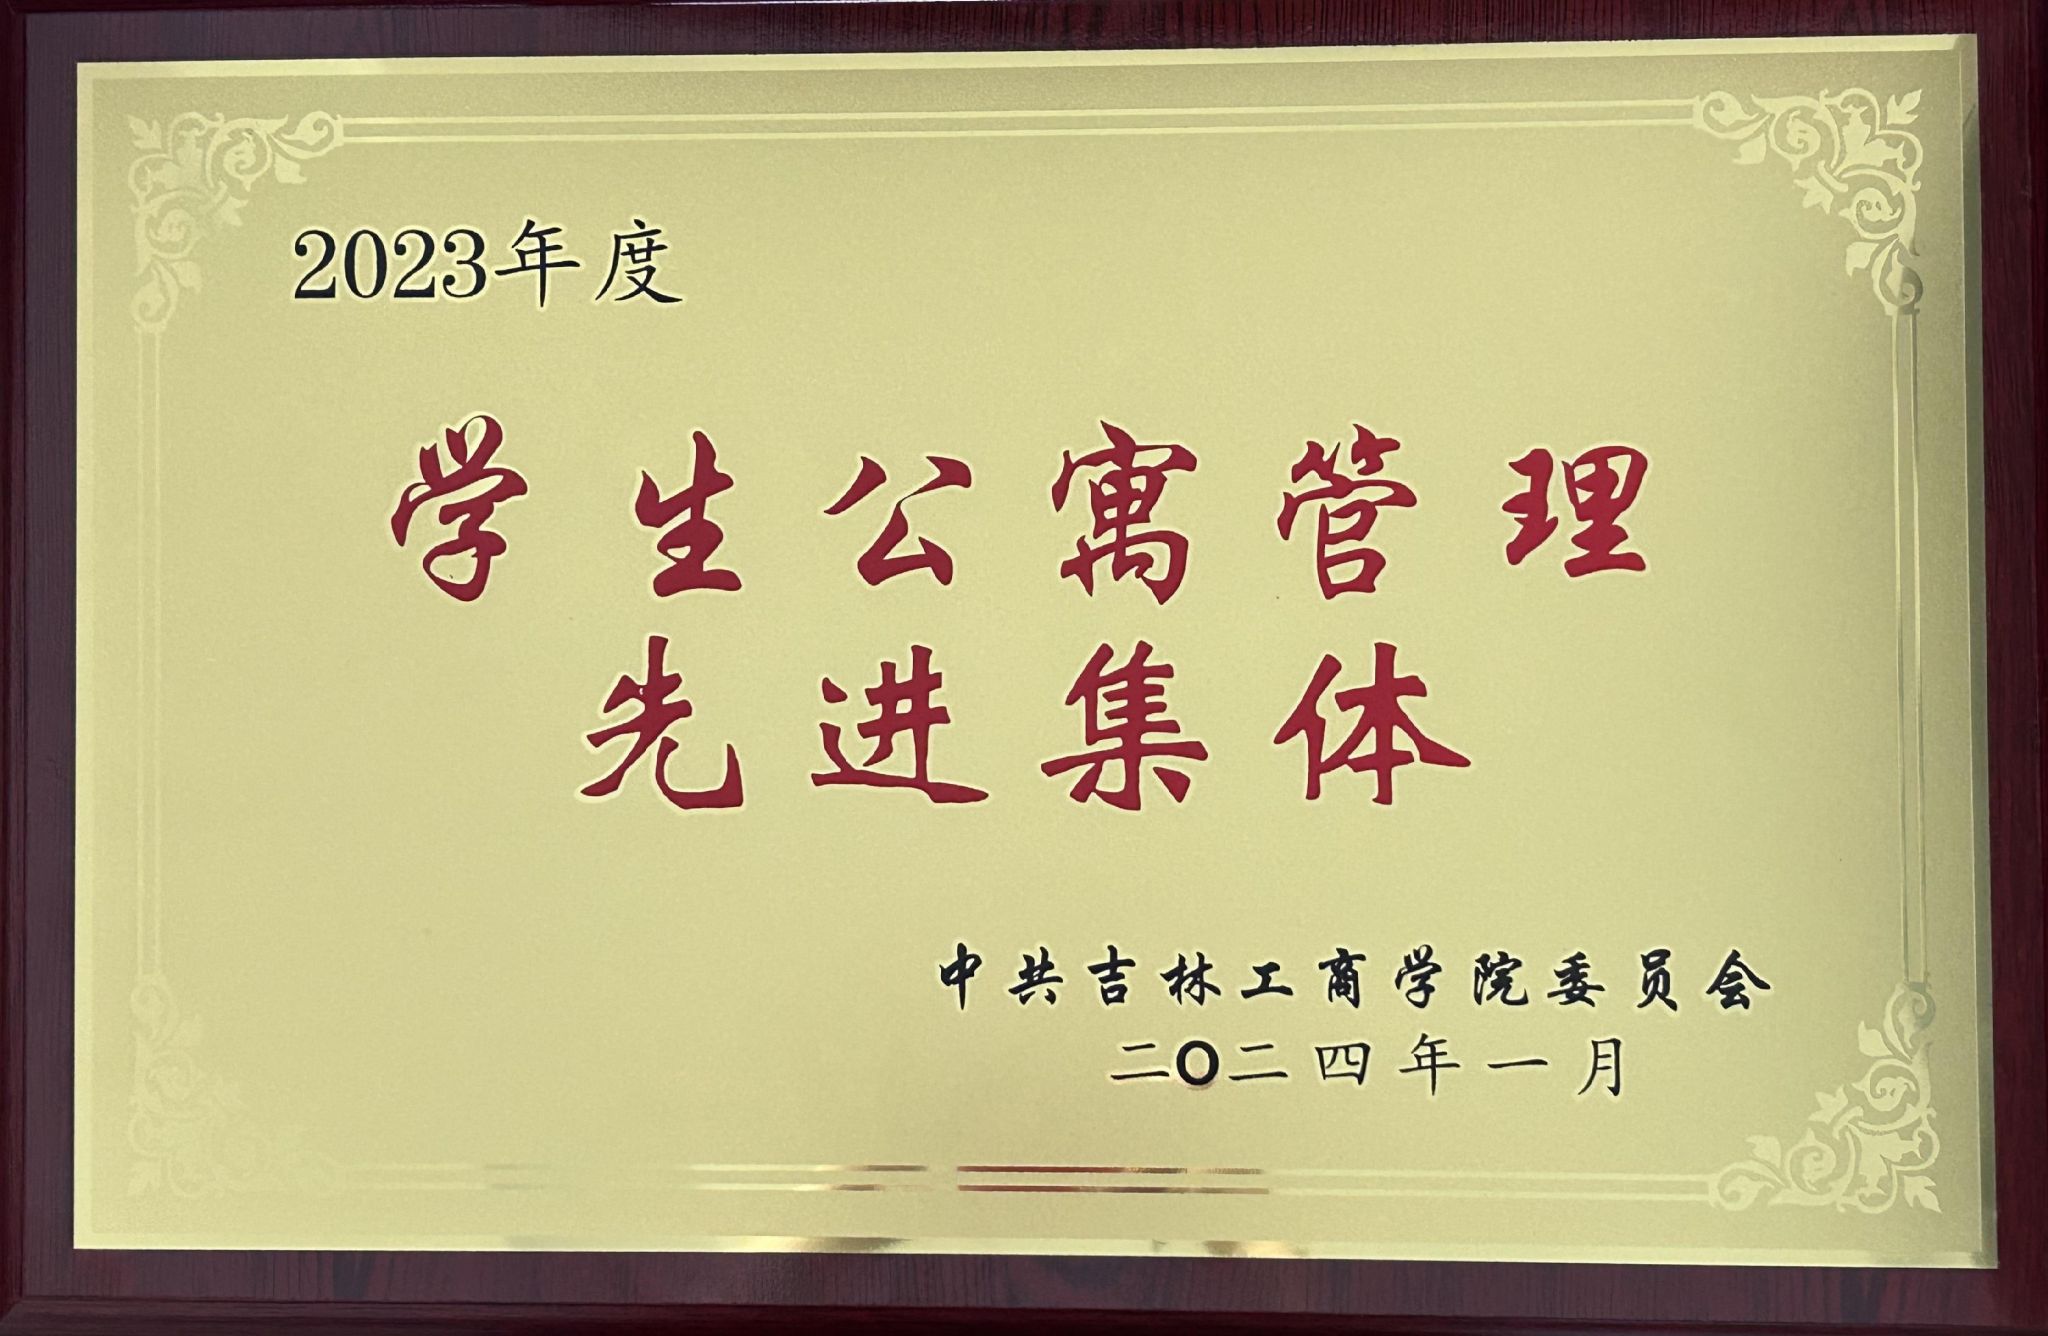 2023年度
学生公寓管理
先进集体
中共吉林工商学院委员会
二〇二四年一月